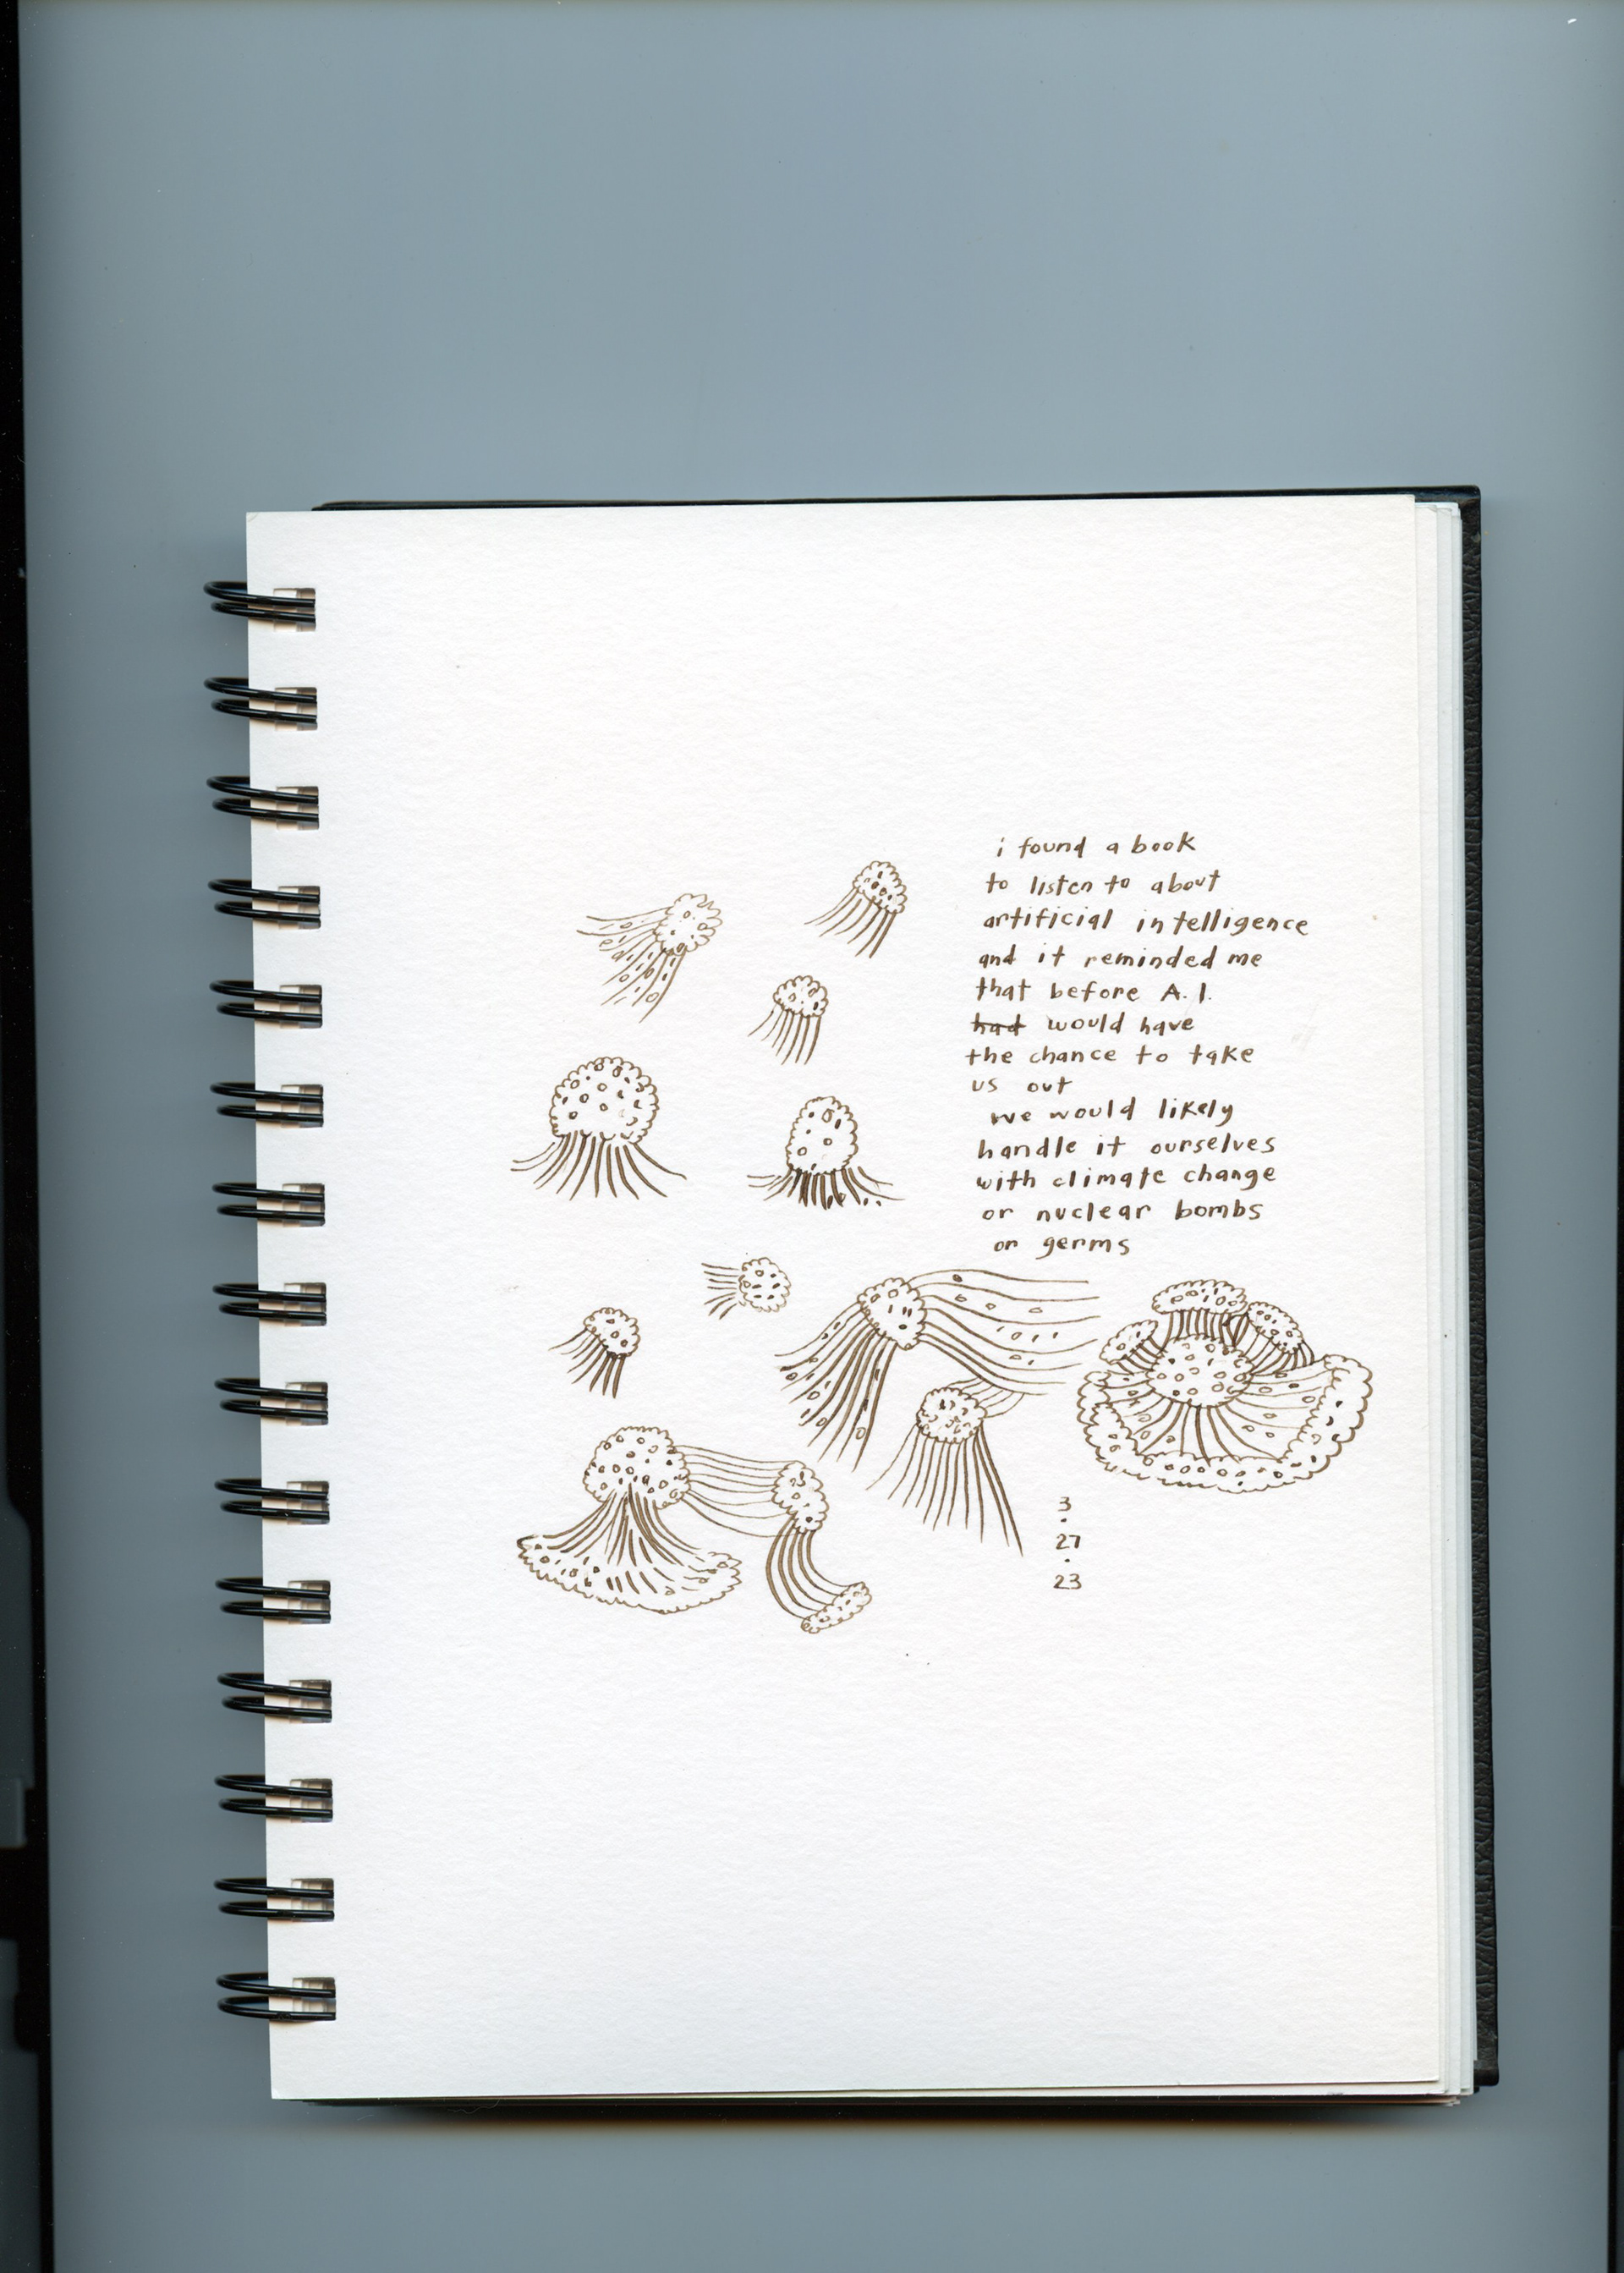 i found a book
to listen to about
artificial intelligence
and it reminded me
that before A.I.
had would have
the chance to take
us out
we would likely
handle it ourselves
with climate change
or nuclear bombs
or germs
3
.
27
.
23